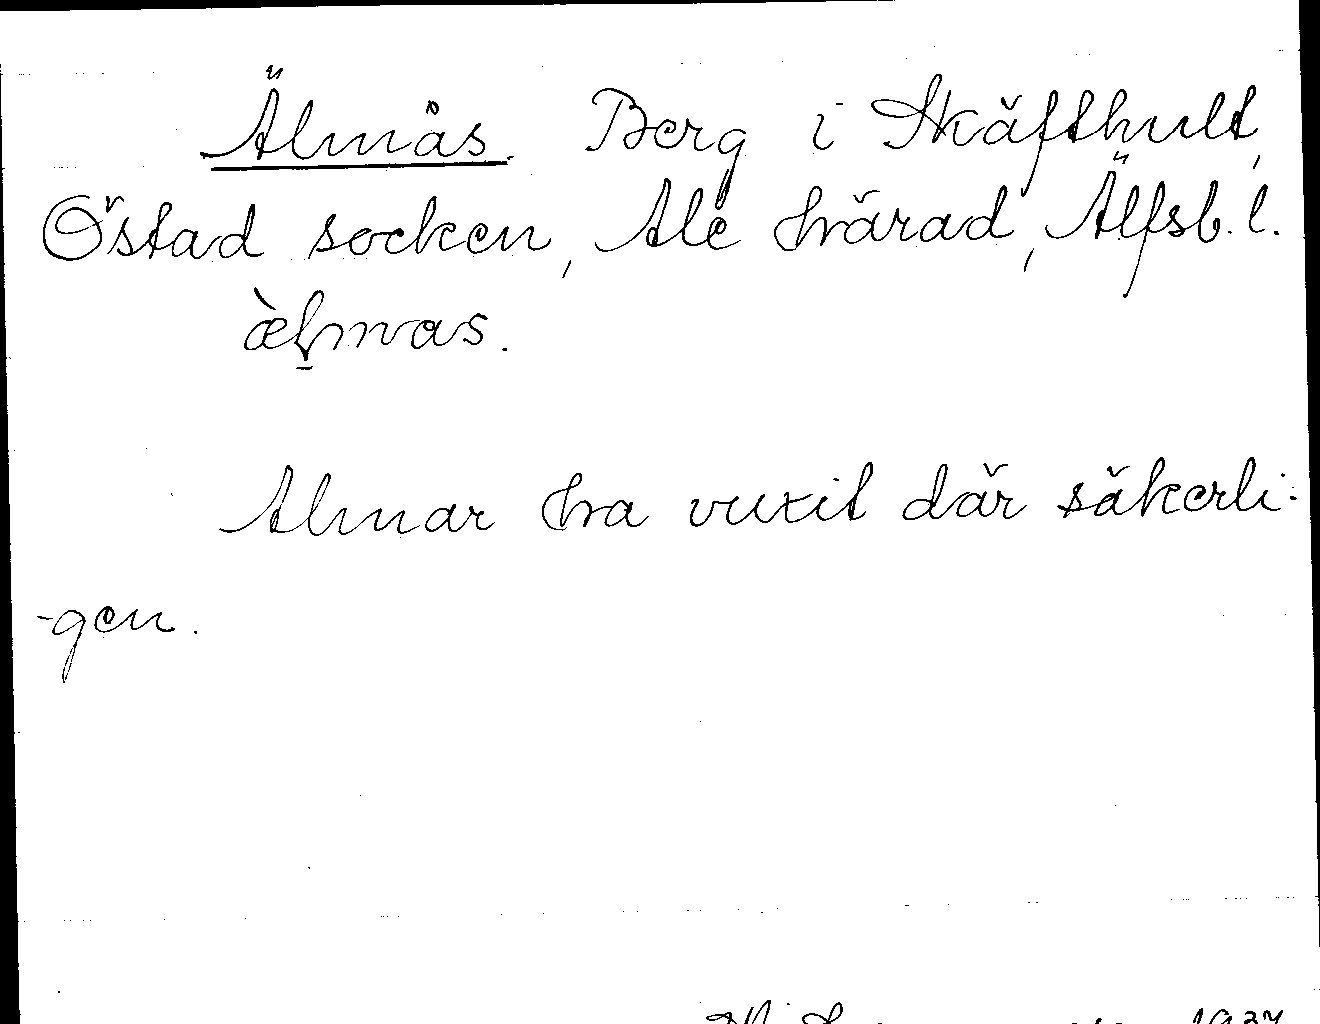 Älmås. Berg i Skäfthult,
Östad socken, Ale härad, Älfsb. l.
æ̀l̠mas.
Almar ha vuxit där säkerli-
-gen.
1937